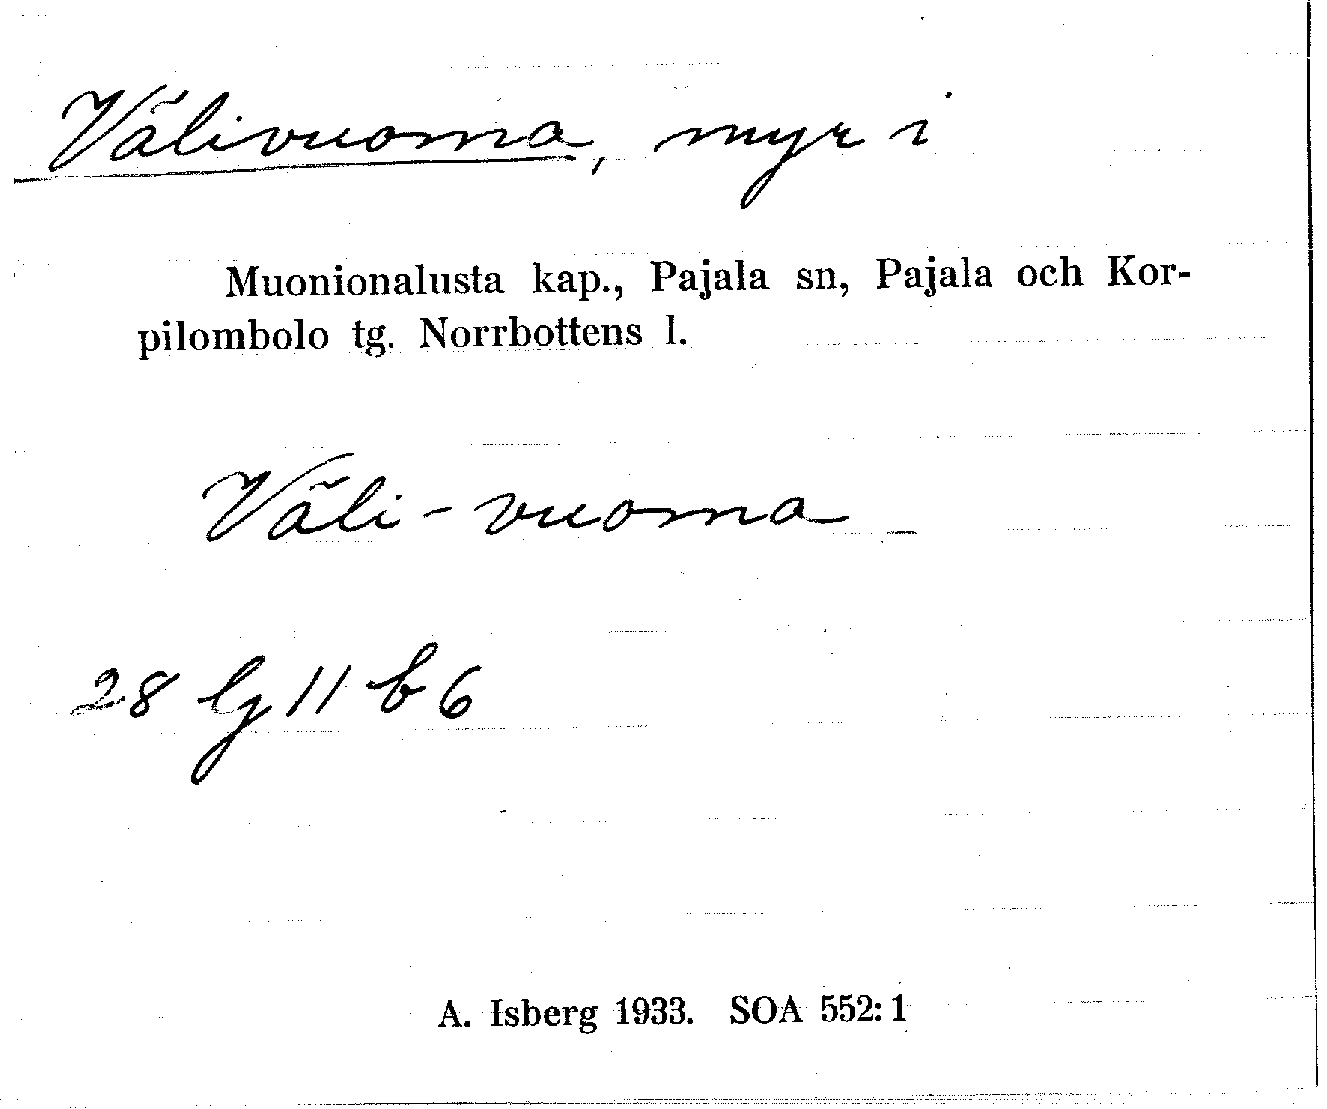 Välivuoma, myr i
Muonionalusta kap., Pajala sn, Pajala och Kor-
pilombolo tg. Norrbottens l.
Väli-vuoma
28 lj 11 b 6
A. Isberg 1933. SOA 552:1